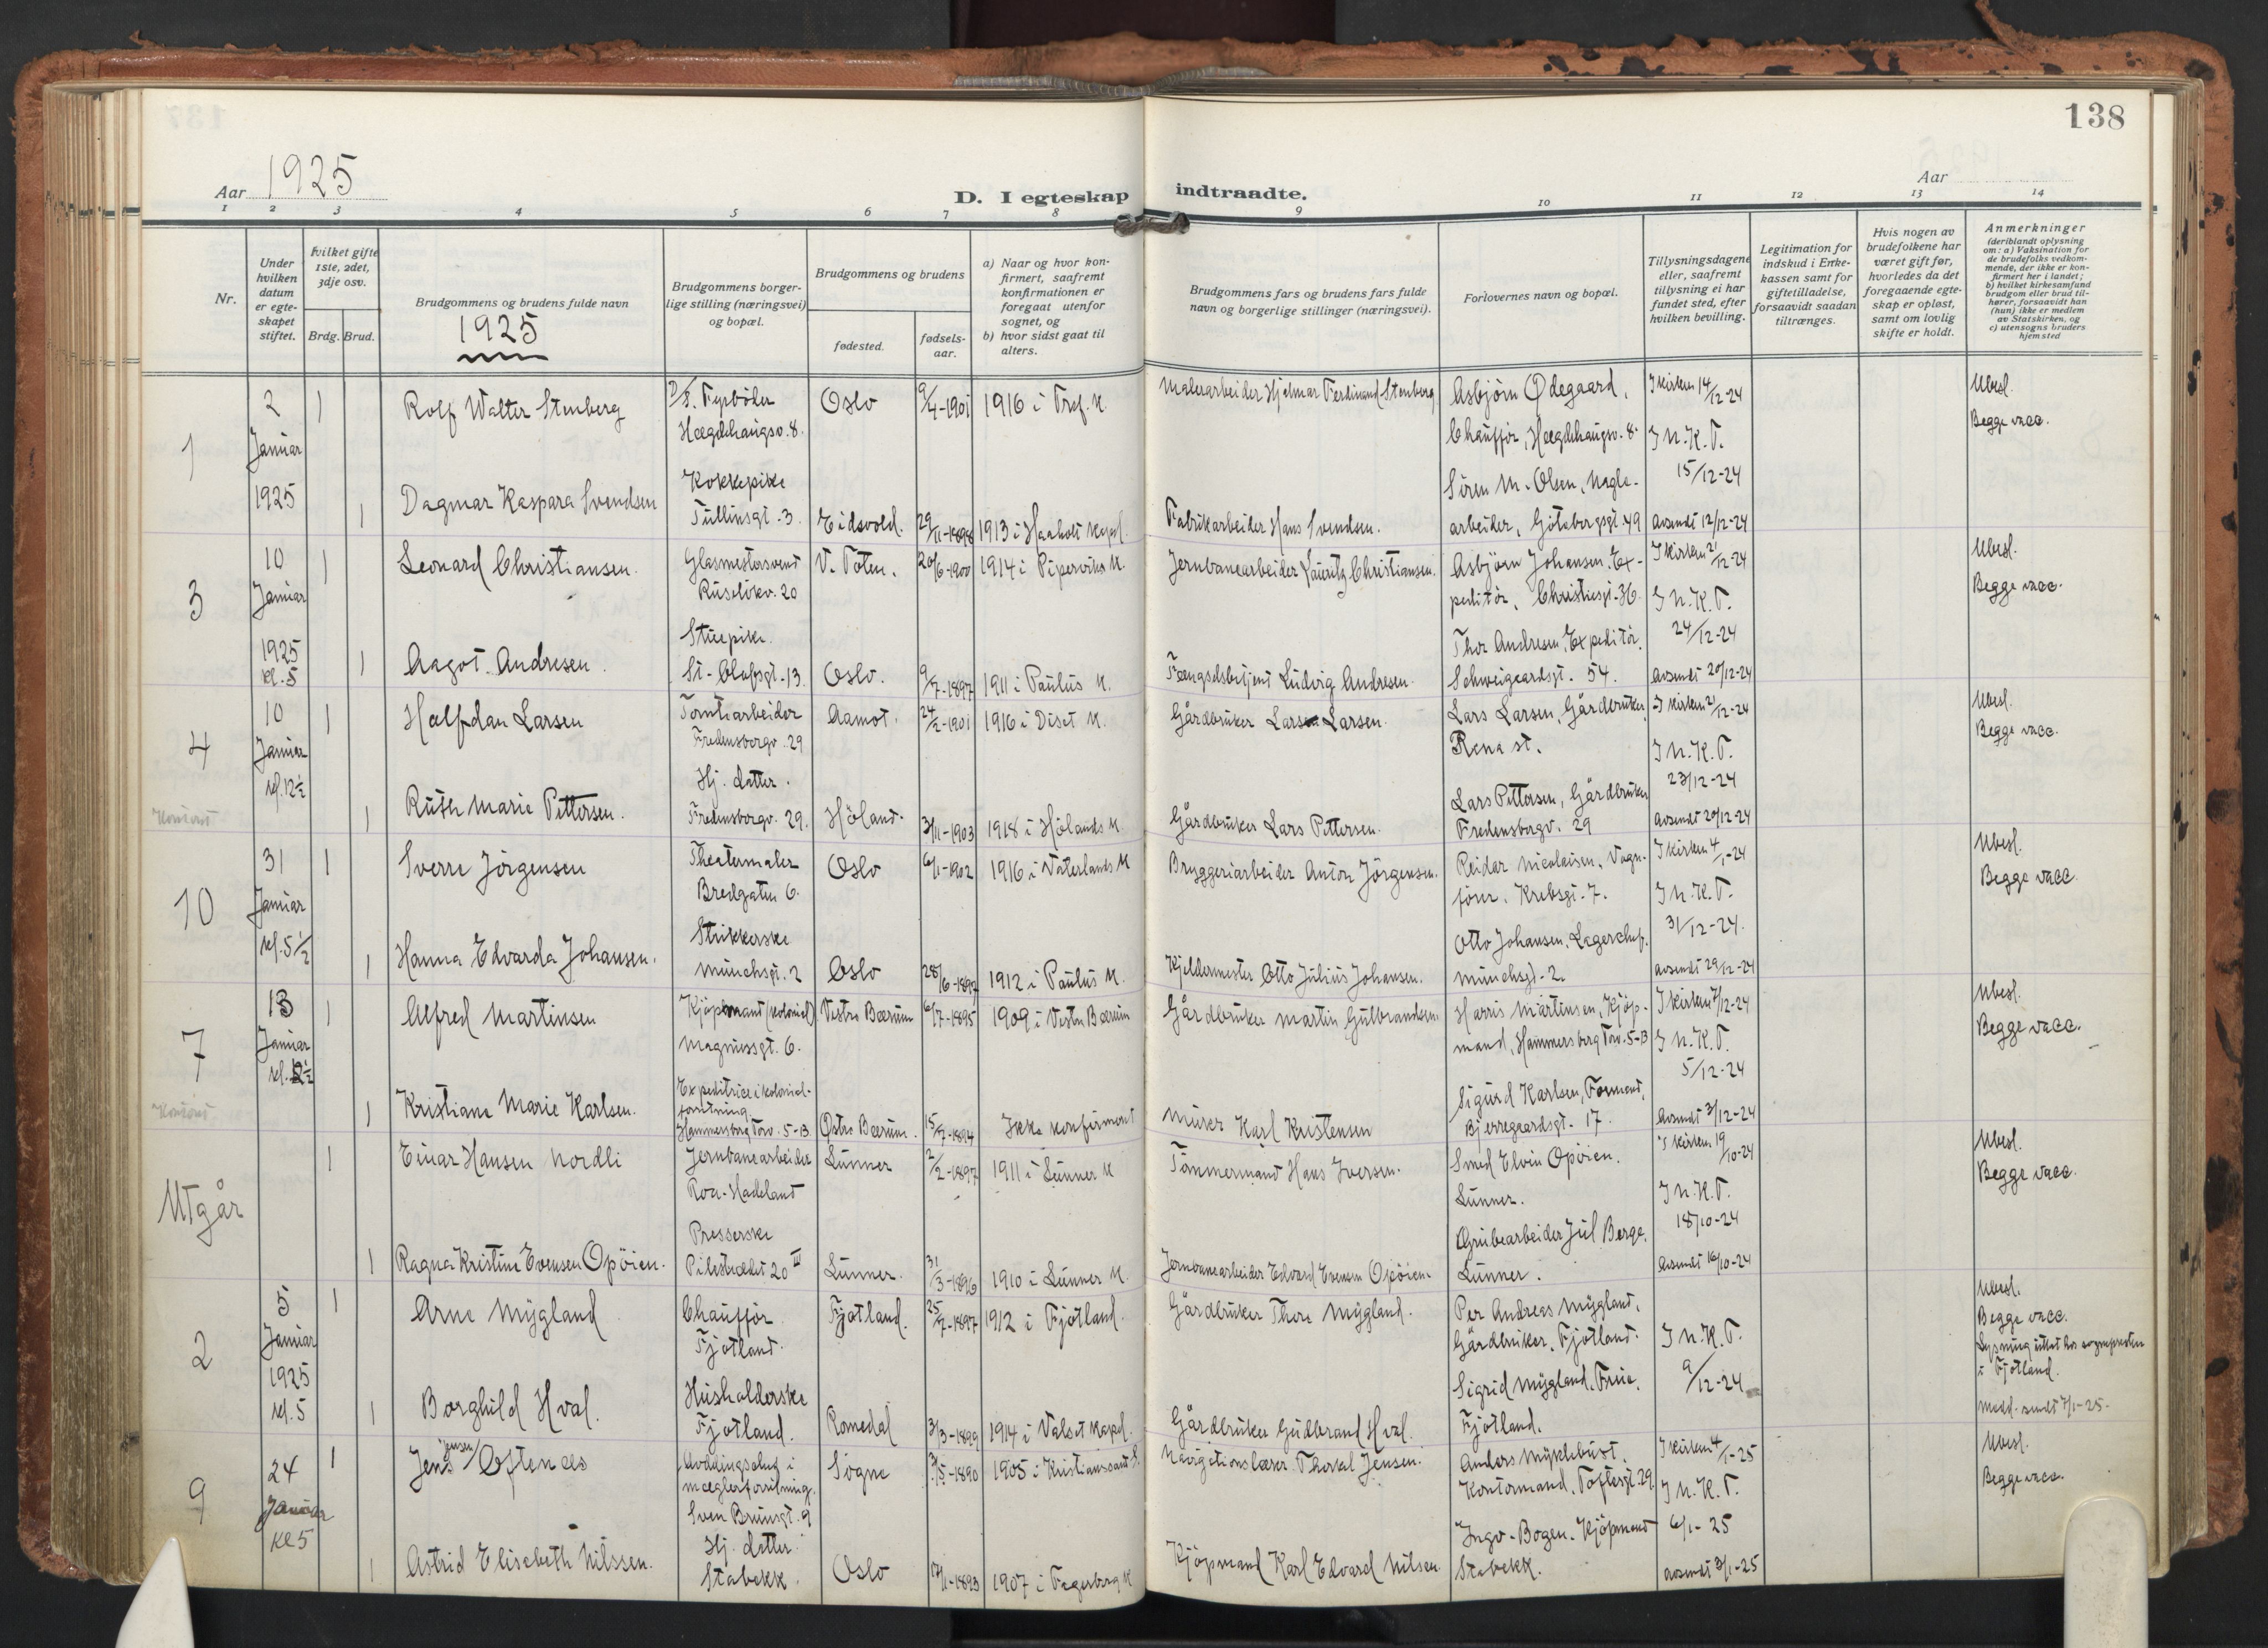 138
Aar 1925
D. I egteskap indtraadte.
Aar
1 2 3 4 5 6 7 8 9 10 11 12 13 14
Nr.
Under hvilken datum er egteskapet stiftet.
Hvilket gifte 1ste, 2det, 3dje osv.
Brdg. Brud.
Brudgommens og brudens fulde navn
1925
Brudgommens borgerlige stilling (næringsvei) og bopæl.
Brudgommens og brudens
fødested.
fødselsaar.
a) Naar og hvor konfirmert, saafremt konfirmationen er foregaat utenfor sognet, og
b) hvor sidst gaat til alters.
Brudgommens fars og brudens fars fulde navn og borgerlige stillinger (næringsvei).
Forlovernes navn og bopæl.
Tillysningsdagene eller, saafremt tillysning ei har fundet sted, efter hvilken bevilling.
Legitimation for indskud i Enkekassen samt for giftetilladelse, forsaavidt saadan tiltrænges.
Hvis nogen av brudefolkene har været gift før, hvorledes da det foregaaende egteskap er opløst, samt om lovlig skifte er holdt.
Anmerkninger
(deriblandt oplysning om: a) Vaksination for de brudefolks vedkommende, der ikke er konfirmert her i landet; b) hvilket kirkesamfund brudgom eller brud tilhører, forsaavidt han (hun) ikke er medlem av Statskirken, og c) utensogns bruders hjemsted
1
2 Januar 1925
1 Rolf Walter Stenberg
D/S. Fyrböter Hægdehaugsv. 8.
Oslo
9/4-1901
1916 i Tref. K.
Malerarbeider Hjelmar Ferdinand Stenberg
Asbjörn Ødegaard, Chaufför, Hægdehaugsv. 8.
I kirken 14/12-24
I N.K.T. 15/12-24
Ubesl.
Begge vacc.
1 Dagmar Kaspara Svendsen
Kokkepike Tullinsgt. 3.
Eidsvold.
29/11-1898
1913 i Haaholt Kapel.
Fabrikarbeider Hans Svendsen.
Sören M. Olsen, Maglearbeider, Götebergsgt. 49
Avsendt 12/12-24
3
10 Januar 1925 kl. 5
1 Leonard Christiansen.
Glasmestersvend Ruselökv. 20
V. Toten.
20/6-1900
1914 i Pipervika K.
Jernbanearbeider Lauritz Christiansen.
Asbjörn Johansen, Expeditör, Christiesgt. 36.
I kirken 21/12-24
I N.K.T. 24/12-24
Ubesl.
Begge vacc.
1 Aagot Andresen.
Stuepike. St. Olafsgt. 13
Oslo.
9/7-1897
1911 i Paulus K.
Fængselsbetjent Ludvig Andresen.
Thor Andresen, Expeditör, Schweigaardsgt. 54.
Avsendt 20/12-24
4
10 Januar kl. 12½
1 Halfdan Larsen
Tomtearbeider Fredensborgv. 29
Aamot.
24/2-1901
1916 i Diset K.
Gårdbruker Lars Larsen.
Lars Larsen, Gårdbruker, Rena st.
I kirken 21/12-24
I N.K.T. 23/12-24
Ubesl.
Begge vacc.
Kontont
1 Ruth Marie Pettersen.
Hj. datter. Fredensborgv. 29.
Höland.
3/11-1903
1918 i Hölands K
Gårdbruker Lars Pettersen.
Lars Pettersen, Gårdbruker Fredensborgv. 29
Avsendt 20/12-24
10
31 Januar kl. 5½
1 Sverre Jörgensen
Theatermaler Bredgaten 6.
Oslo
6/1-1902
1916 i Vaterlands K
Bryggeriarbeider Anton Jörgensen.
Reidar Nicolaisen, Vognförer. Krebsgt. 7.
I kirken 4/1-24
I N.K.T. 31/12-24.
Ubesl.
Begge vacc.
1 Hanna Edvarda Johansen.
Strikkerske Munchsgt. 2
Oslo
28/6-1897
1912 i Paulus K.
Kjeldermester Otto Julius Johansen.
Otto Johansen, Lagerchef. Munchsgt. 2.
Avsendt 29/12-24
7
13 Januar
1 Alfred Martinsen
Kjöpmand (kolonial) Magnusgt. 6.
Vestre Bærum
6/7-1895
1909 i Vestre Bærum
Gårdbruker Martin Gulbrandsen.
Harris Martinsen, Kjöpmand, Hammersborg Torv. 5-B
I kirken 7/12-24
I N.K.T. 5/12-24
Ubesl.
Begge vacc.
Kontont
1 Kristiane Marie Karlsen.
Expeditrice i kolonialforretning. Hammersborg Torv. 5-B
Østre Bærum.
15/7-1894
Ikke konfirmert
Murer Karl Kristensen
Sigurd Karlsen, Formand, Bjerregaardsgt. 17.
Avsendt 3/12-24
Utgår
1 Einar Hansen Nordli
Jernbanearbeider Roa-Hadeland
Lunner
2/2-1897
1911 i Lunner K
Tömmermand Hans Iversen.
Smed Elvin Opöien. Lunner.
I kirken 19/10-24
I N.K.T. 18/10-24
Ubesl.
Begge vacc.
1 Ragna Kristine Evensen Opöien.
Presserske Pilestrædet 20 III
Lunner.
31/3-1896
1910 i Lunner K.
Jernbanearbeider Edvard Evensen Opöien.
Grubearbeider Jul Berge. Lunner.
Avsendt 16/10-24
2
5 Januar 1925 kl. 5
1 Arne Mygland
Chaufför Fjotland.
Fjotland.
25/7-1897
1912 i Fjotland.
Gårdbruker Thore Mygland.
Per Andreas Mygland, Gårdbruker, Fjotland.
I N.K.T. 9/12-24
Ubesl.
Begge vacc.
Lysning uttat hos sognepresten i Fjotland.
Medd. sendt 7/1-25-
1 Borghild Hval.
Husholderske Fjotland.
Romedal
3/3-1899
1914 i Valset Kapel.
Gårdbruker Gudbrand Hval.
Sigrid Mygland, Frue, Fjotland.
9
24 Januar Kl 5
1 Jens /Jensen/ Oftenæs
i mæglerforretning. Sven Brunsgt. 9
Sogne
1905 i Kristianssand S.
Navigationslærer Thorval Jensen.
Anders Myklebust, Kontormand, Toftesgt. 29.
I kirken 4/1-25
I N.K.T. 6/1-25
Ubesl.
Begge vacc.
1 Astrid Elisabeth Nilssen.
Hj. datter. Stabekk.
Oslo
17/1-1893
1907 i Fagerborg K
Kjöpmand Karl Edvard Nilsen.
Ingv. Bogen. Kjöpmand Stabekk.
Avsendt 3/1-25